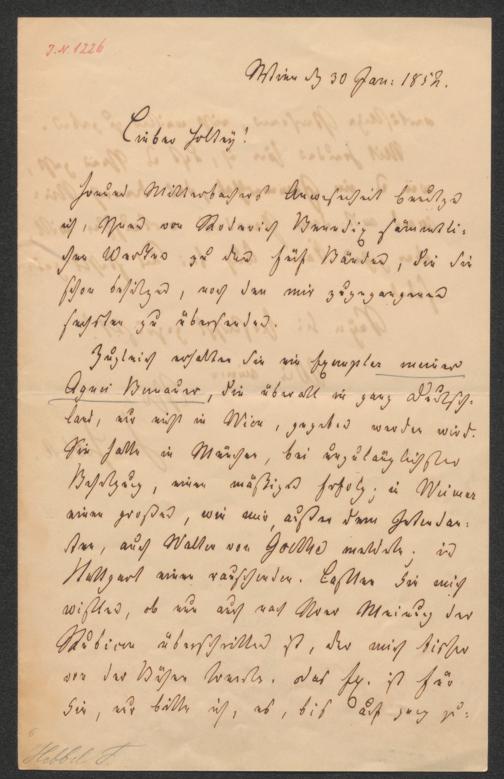 J.N. 1226
Wien d 30 Jan: 1852.
Lieber Holtey!
Freund Mitterbachers Anwesenheit benutze
ich Ihnen von Roderich Benedix sämmtli-
chen Werken zu den fünf Bänden, die Sie
schon besitzen, noch den mir zugegangenen
sechsten zu übersenden.
Zugleich erhalten Sie ein Exemplar meiner
Agnes Bernauer, die überall in ganz Deutsch-
land, nur nicht in Wien, gegeben werden wird.
Sie hatte in München, bei unzulänglichster
Besetzung, einen mäßigen Erfolg; in Weimar
einen großen, wie mir, außer dem Intendan-
ten, auch Walter von Goethe meldete. in
Stuttgart einen rauschenden. Lassen Sie mich
wissen, ob nun auch nach Ihrer Meinung der
Rubicon überschritten ist, der mich bisher
von der Bühne trennte. das Ex. ist für
Sie, nur bitte ich, es, bis auf ganz zu-
Hebbel F.